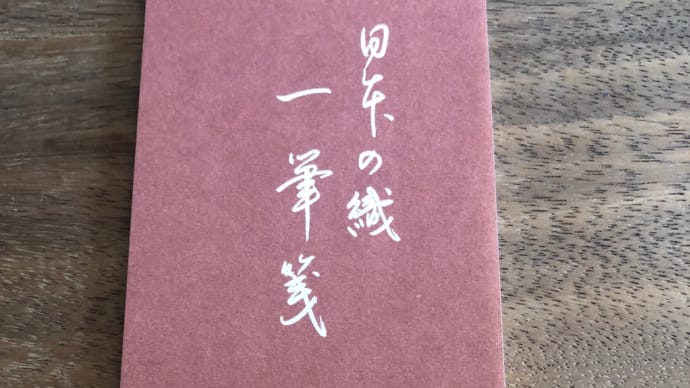 日本の織
一筆箋